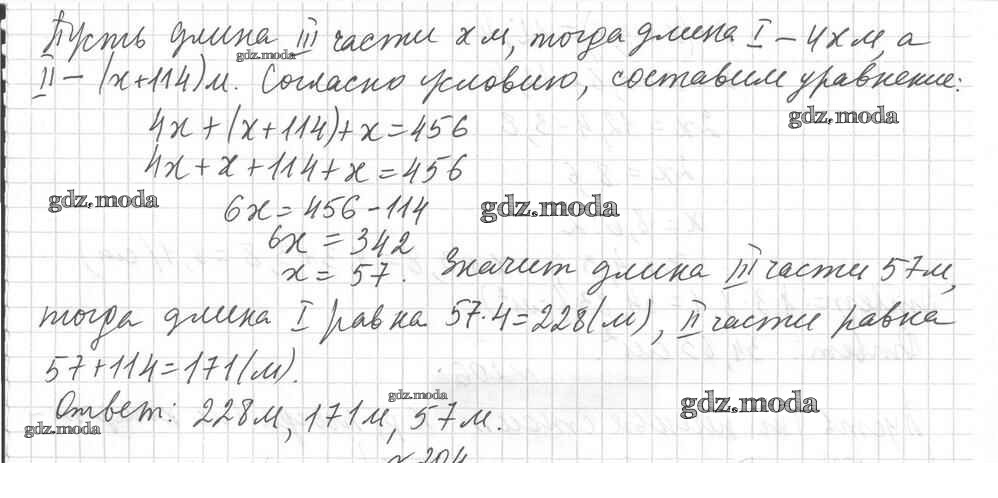 Пусть длина III части x м, тогда длина I – 4x м, а
gdz.moda
II – (x+114) м. Согласно условию, составим уравнение:
gdz.moda
4x+(x+114)+x=456
4x+x+114+x=456
gdz.moda
6x=456-114
gdz.moda
6x=342
x=57. Значит длина III части 57 м,
тогда длина I равна 57·4=228(м), II части равна
57+114=171(м).
gdz.moda
gdz.moda
Ответ: 228м, 171м, 57м.
gdz.moda